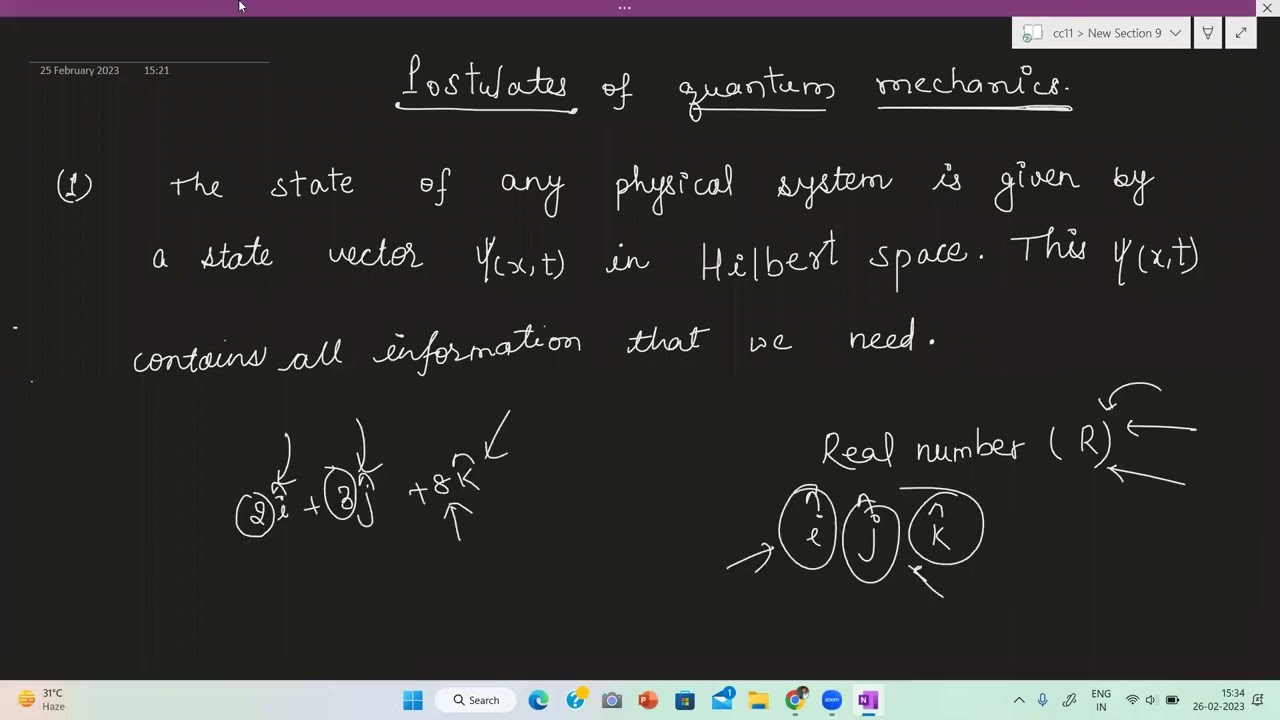 ...
cc11 > New Section 9
25 February 2023 15:21
Postulates of quantum mechanics.
(1) The state of any physical system is given by
a state vector ψ(x,t) in Hilbert space. This ψ(x,t)
contains all information that we need.
Real number (R)
2î + 3ĵ + 8k̂
î ĵ k̂
31°C
Haze
Search
1
zoom
N
ENG
IN
15:34
26-02-2023